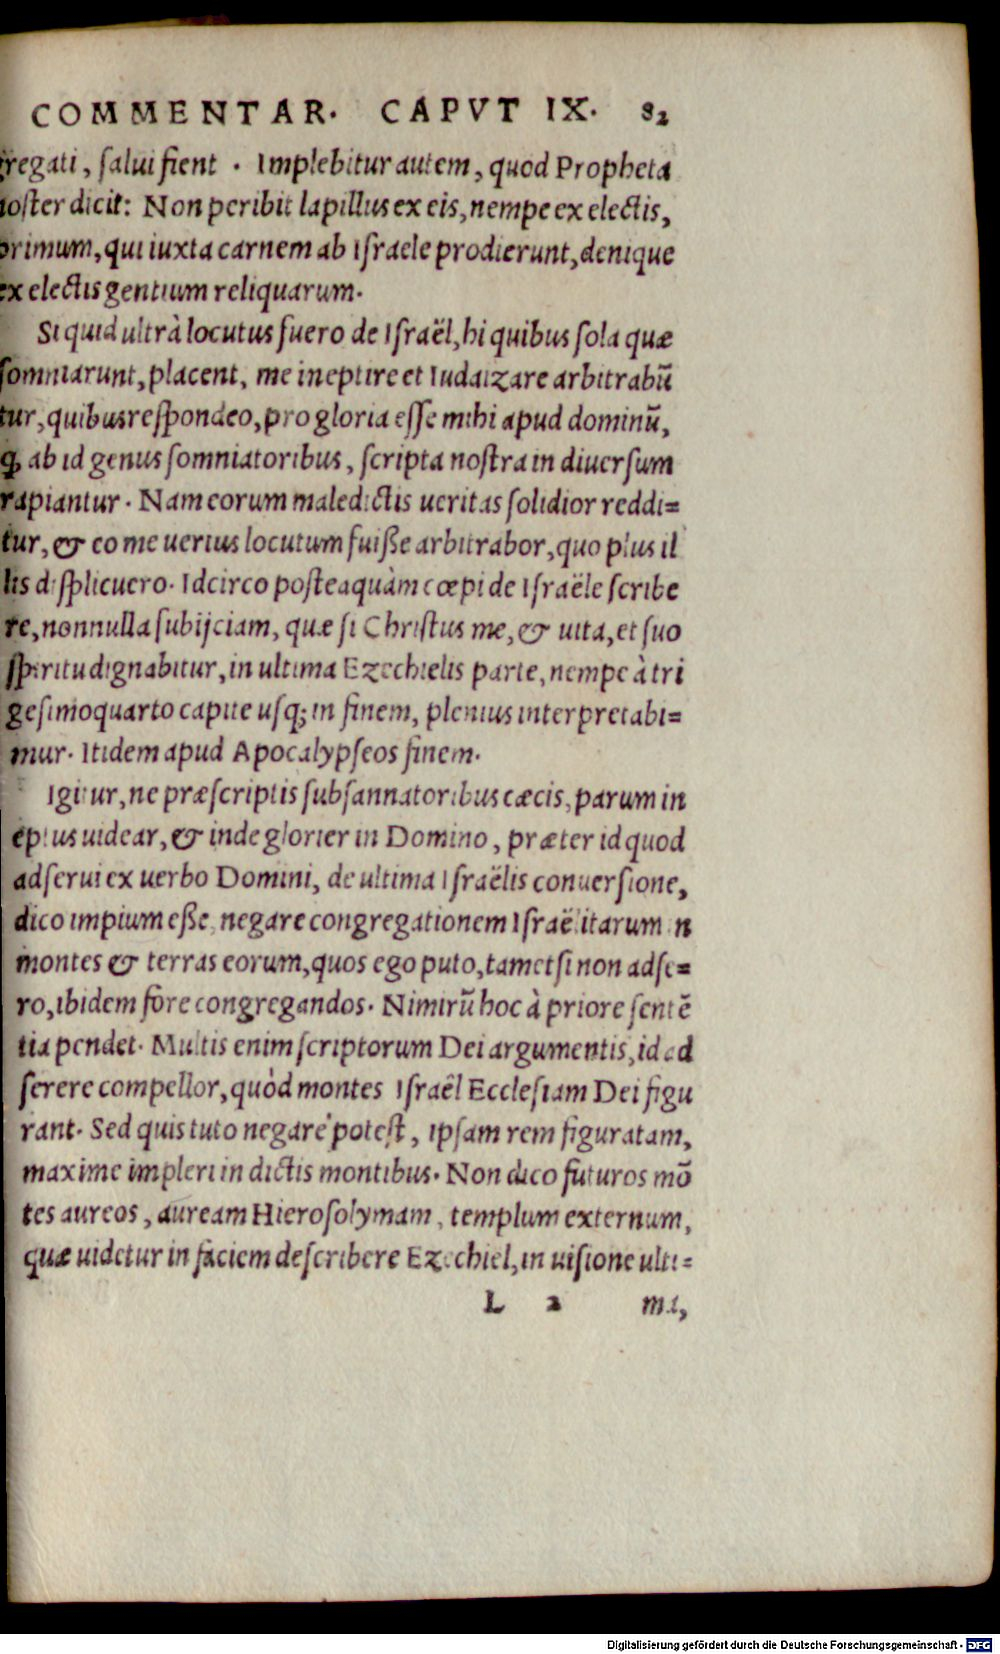 COMMENTAR. CAPVT IX. 82
gregati, ſalui fient . Implebitur autem, quod Propheta
noſter dicit: Non peribit lapillus ex eis, nempe ex electis,
primum, qui iuxta carnem ab Iſraele prodierunt, denique
ex electis gentium reliquarum.
Si quid ultrà locutus fuero de Iſraël, hi quibus ſola quæ
ſomniarunt, placent, me ineptire et Iudaizare arbitrabũ
tur, quibus reſpondeo, pro gloria eſſe mihi apud dominũ,
ꝙ ab id genus ſomniatoribus, ſcripta noſtra in diuerſum
rapiantur. Nam eorum maledictis ueritas ſolidior reddi=
tur, & eo me uerius locutum fuiße arbitrabor, quo plus il
lis diſplicuero. Idcirco poſteaquàm cœpi de Iſraële ſcribe
re, nonnulla ſubijciam, quæ ſi Chriſtus me, & uita, et ſuo
ſpiritu dignabitur, in ultima Ezechielis parte, nempe à tri
geſimoquarto capite uſq; in finem, plenius interpretabi=
mur. Itidem apud Apocalypſeos finem.
Igitur, ne præſcriptis ſubſannatoribus cæcis, parum in
eptus uidear, & inde glorier in Domino, præter id quod
adſerui ex uerbo Domini, de ultima Iſraëlis conuerſione,
dico impium eße, negare congregationem Iſraëlitarum in
montes & terras eorum, quos ego puto, tametſi non adſe=
ro, ibidem fore congregandos. Nimirũ hoc à priore ſentẽ
tia pendet. Multis enim ſcriptorum Dei argumentis, id ad
ſerere compellor, quòd montes Iſraêl Eccleſiam Dei figu
rant. Sed quis tuto negare poteſt, ipſam rem figuratam,
maxime impleri in dictis montibus. Non dico futuros mõ
tes aureos, auream Hieroſolymam, templum externum,
quæ uidetur in faciem deſcribere Ezechiel, in uiſione ulti=
L 2 ma,
Digitalisierung gefördert durch die Deutsche Forschungsgemeinschaft - DFG